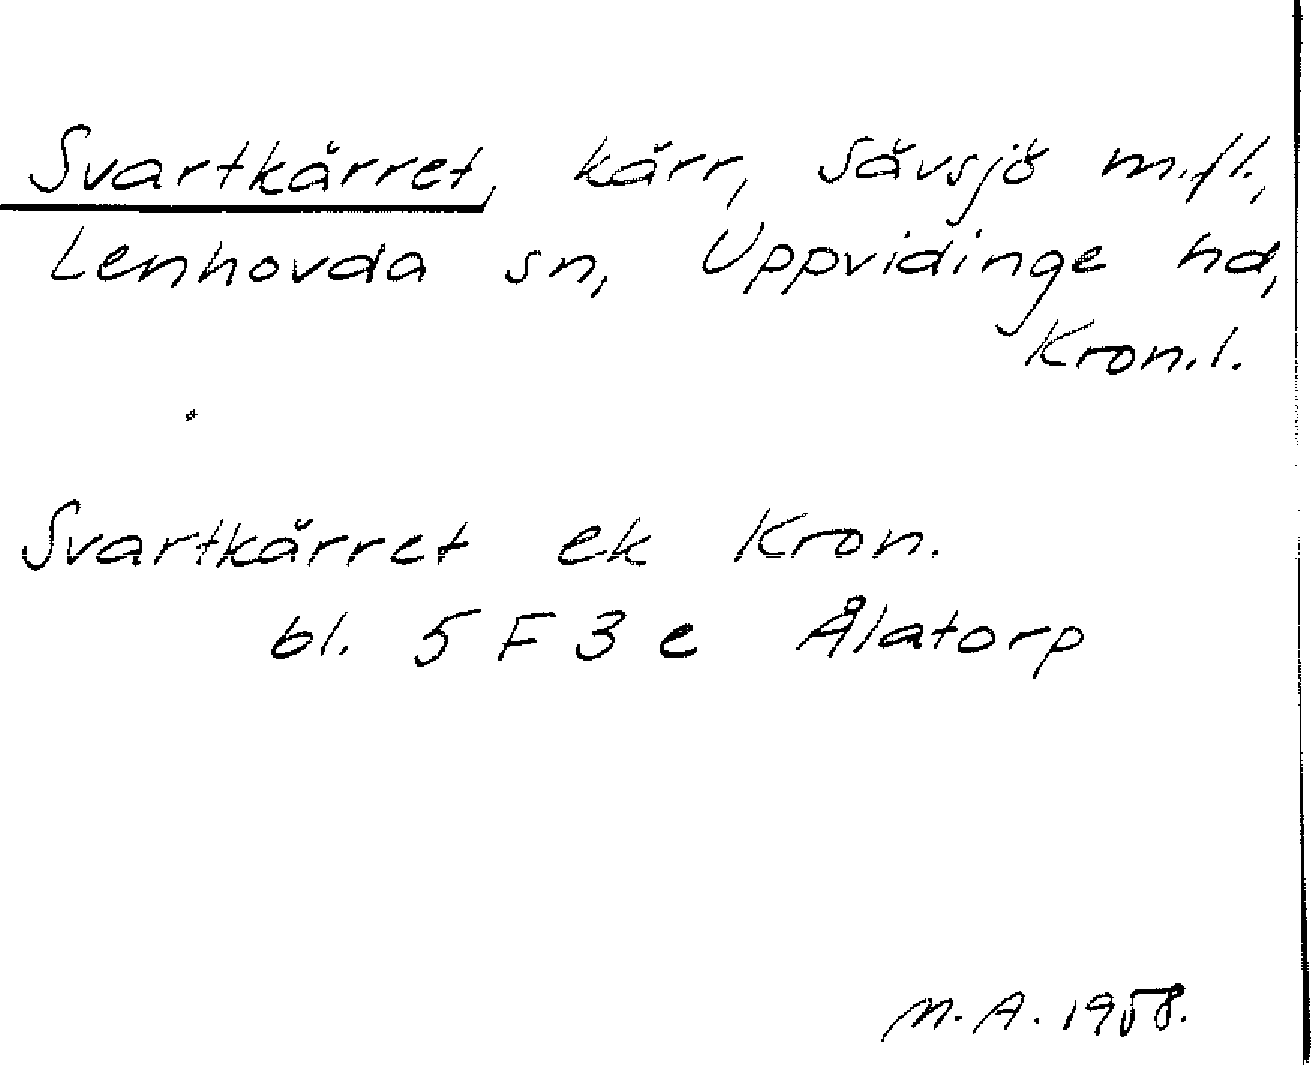 Svartkärret, kärr, Sävsjö m.fl.,
Lenhovda sn, Uppvidinge hd,
Kron.l.
Svartkärret ek Kron.
bl. 5 F 3 e Ålatorp
M.A. 1958.